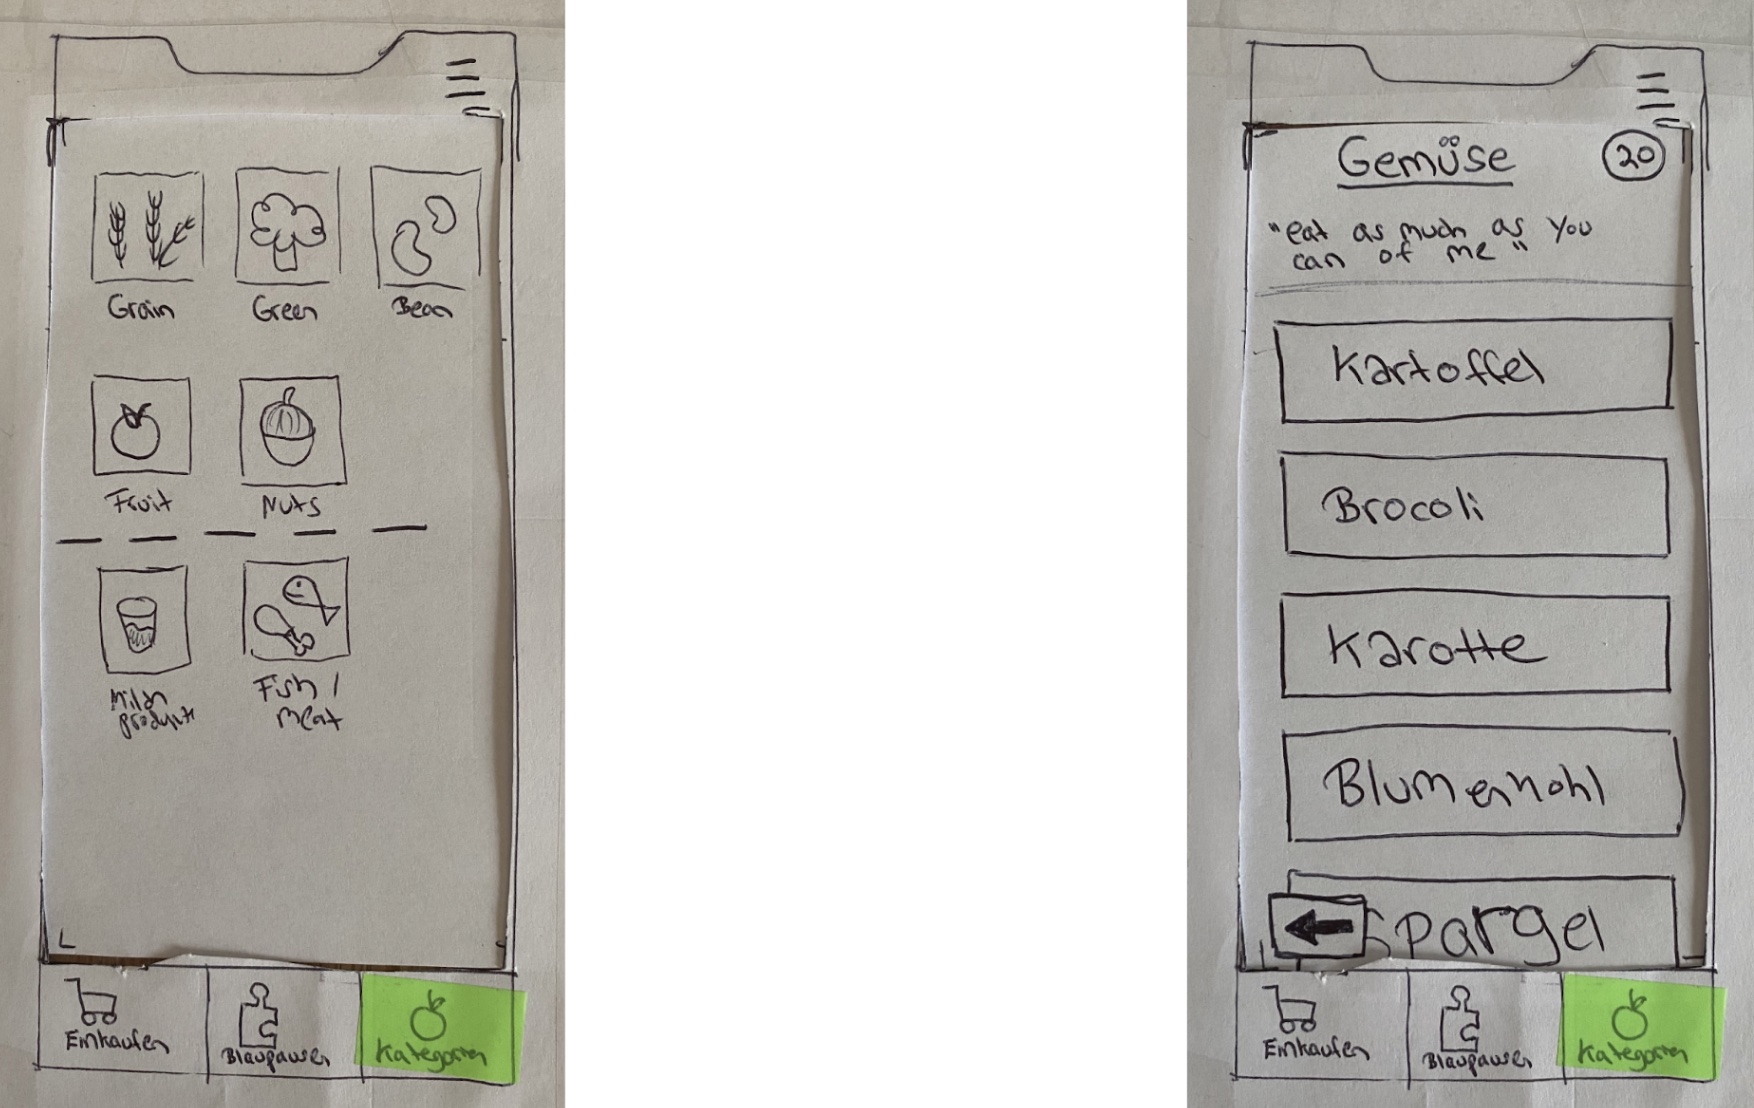 Grain
Green
Bean
Fruit
Nuts
Milch
produkte
Fish /
meat
Einkaufen
Blaupausen
Kategorien
Gemüse
20
"eat as much as you
can of me"
Kartoffel
Brocoli
Karotte
Blumenkohl
Spargel
Einkaufen
Blaupausen
Kategorien